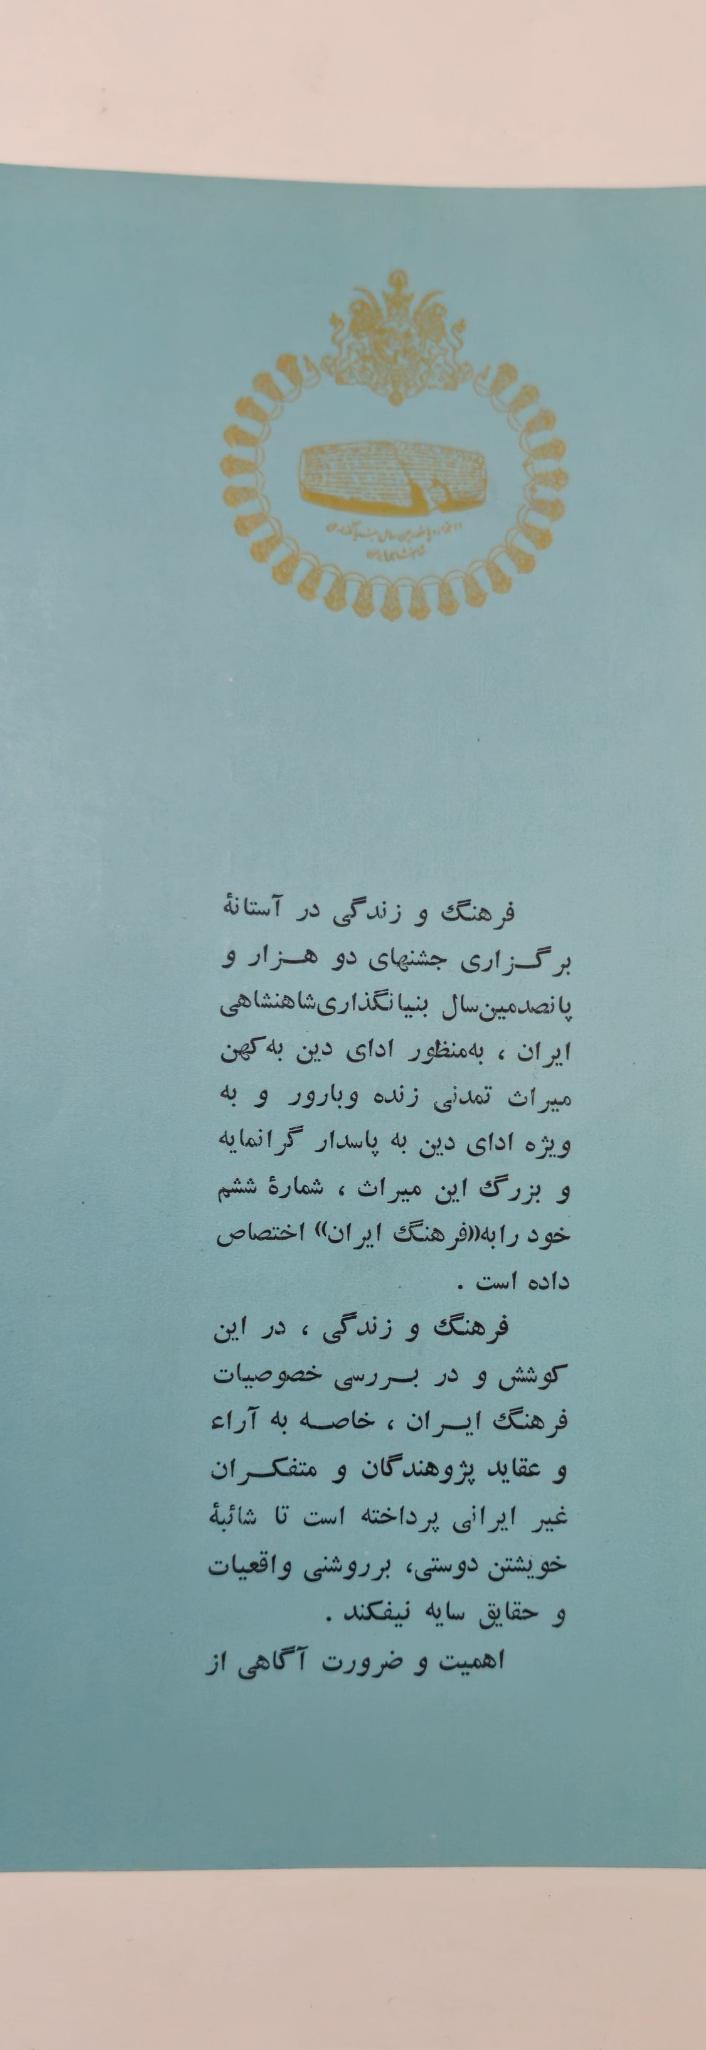 فرهنگ و زندگی در آستانهٔ
برگزاری جشنهای دو هزار و
پانصدمین‌سال بنیانگذاری‌شاهنشاهی
ایران ، به‌منظور ادای دین به‌کهن
میراث تمدنی زنده وبارور و به
ویژه ادای دین به پاسدار گرانمایه
و بزرگ این میراث ، شمارهٔ ششم
خود رابه«فرهنگ ایران» اختصاص
داده است .
فرهنگ و زندگی ، در این
کوشش و در بررسی خصوصیات
فرهنگ ایران ، خاصه به آراء
و عقاید پژوهندگان و متفکران
غیر ایرانی پرداخته است تا شائبهٔ
خویشتن دوستی، برروشنی واقعیات
و حقایق سایه نیفکند .
اهمیت و ضرورت آگاهی از